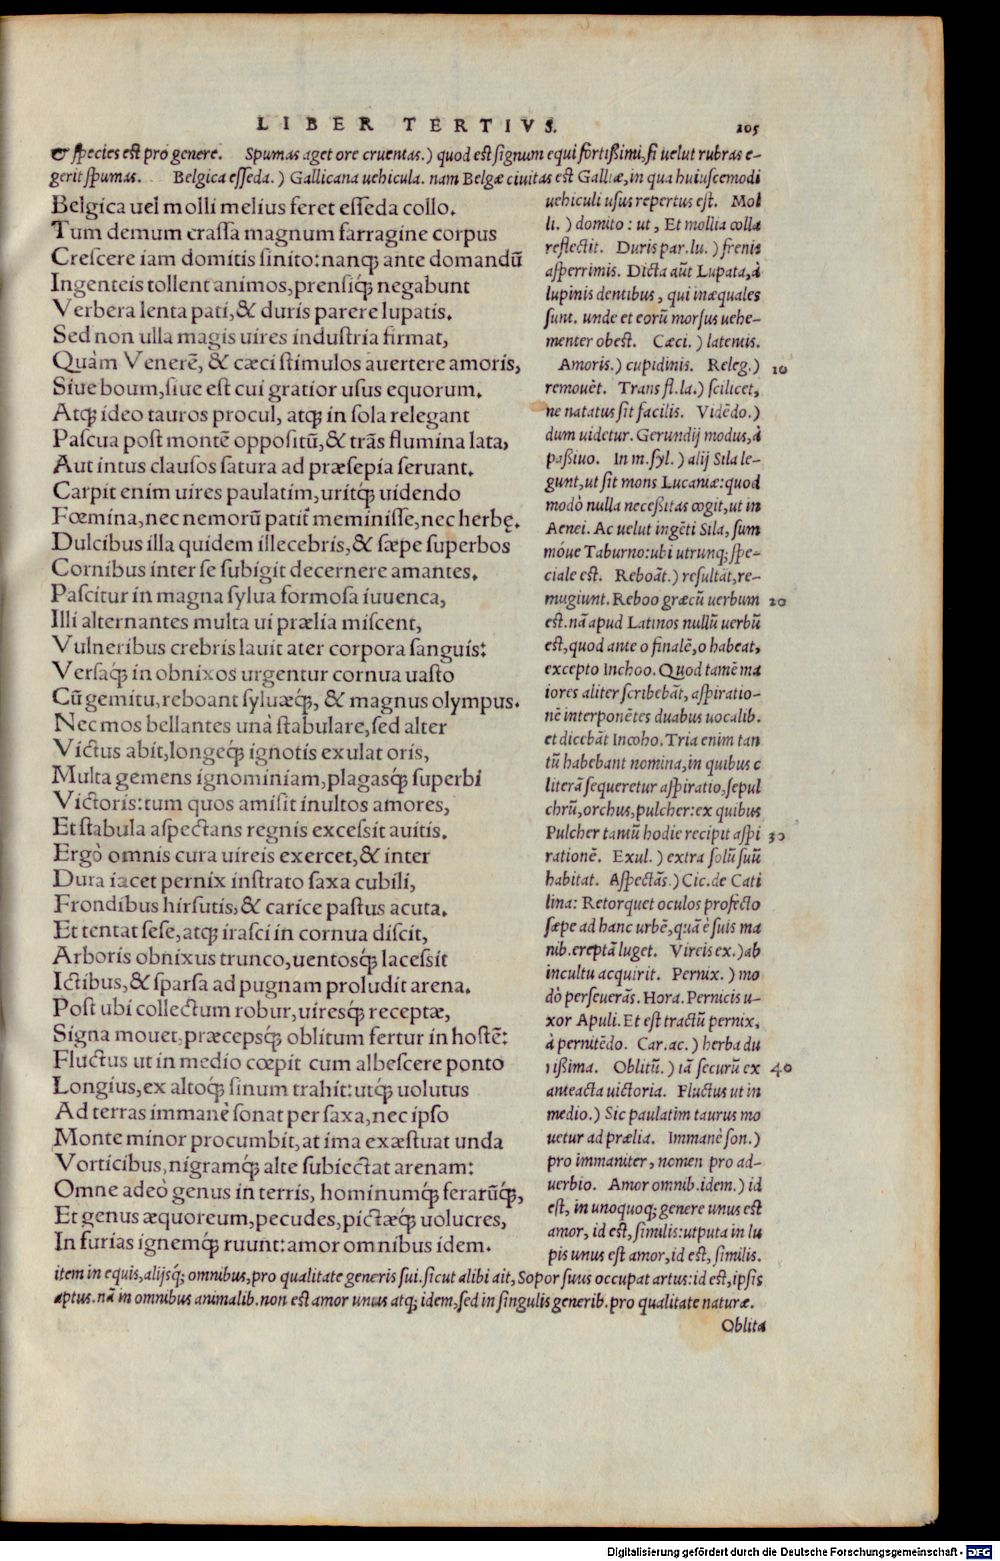 LIBER TERTIVS. 205
& species est pro genere. Spumas aget ore cruentas.) quod est signum equi fortißimi, si uelut rubras e-
gerit spumas. Belgica esseda.) Gallicana uehicula. nam Belgæ ciuitas est Galliæ, in qua huiuscemodi
Belgica uel molli melius feret esseda collo.
Tum demum crassa magnum farragine corpus
Crescere iam domitis sinito: nanq; ante domandũ
Ingenteis tollent animos, prensiq́; negabunt
Verbera lenta pati, & duris parere lupatis.
Sed non ulla magis uires industria firmat,
Quàm Venerẽ, & cæci stimulos auertere amoris,
Siue boum, siue est cui gratior usus equorum.
Atq; ideo tauros procul, atq; in sola relegant
Pascua post montẽ oppositũ, & trãs flumina lata,
Aut intus clausos satura ad præsepia seruant.
Carpit enim uires paulatim, uritq́; uidendo
Fœmina, nec nemorũ patit᷑ meminisse, nec herbę.
Dulcibus illa quidem illecebris, & sæpe superbos
Cornibus inter se subigit decernere amantes.
Pascitur in magna sylua formosa iuuenca,
Illi alternantes multa ui prælia miscent,
Vulneribus crebris lauit ater corpora sanguis:
Versaq́; in obnixos urgentur cornua uasto
Cũ gemitu, reboant syluæq́;, & magnus olympus.
Nec mos bellantes unà stabulare, sed alter
Victus abit, longeq́; ignotis exulat oris,
Multa gemens ignominiam, plagasq́; superbi
Victoris: tum quos amisit inultos amores,
Et stabula aspectans regnis excessit auitis.
Ergò omnis cura uireis exercet, & inter
Dura iacet pernix instrato saxa cubili,
Frondibus hirsutis, & carice pastus acuta.
Et tentat sese, atq; irasci in cornua discit,
Arboris obnixus trunco, uentosq́; lacessit
Ictibus, & sparsa ad pugnam proludit arena.
Post ubi collectum robur, uiresq́; receptæ,
Signa mouet, præcepsq́; oblitum fertur in hostẽ:
Fluctus ut in medio cœpit cum albescere ponto
Longius, ex altoq́; sinum trahit: utq́; uolutus
Ad terras immanè sonat per saxa, nec ipso
Monte minor procumbit, at ima exæstuat unda
Vorticibus, nigramq́; alte subiectat arenam:
Omne adeò genus in terris, hominumq́; ferarũq́;,
Et genus æquoreum, pecudes, pictæq́; uolucres,
In furias ignemq́; ruunt: amor omnibus idem.
uehiculi usus repertus est. Mol
li.) domito: ut, Et mollia colla
reflectit. Duris par. lu.) frenis
asperrimis. Dicta aũt Lupata, à
lupinis dentibus, qui inæquales
sunt. unde et eorũ morsus uehe-
menter obest. Cæci.) latentis.
Amoris.) cupidinis. Releg.) 10
remouẽt. Trans fl. la.) scilicet,
ne natatus sit facilis. Vidẽdo.)
dum uidetur. Gerundij modus, à
paßiuo. In m. syl.) alij Sila le-
gunt, ut sit mons Lucaniæ: quod
modò nulla neceßitas cogit, ut in
Aenei. Ac uelut ingẽti Sila, sum
móue Taburno: ubi utrunq; spe-
ciale est. Reboãt.) resultãt, re-
mugiunt. Reboo græcũ uerbum 20
est. nã apud Latinos nullũ uerbũ
est, quod ante o finalẽ, o habeat,
excepto Inchoo. Quod tamẽ ma
iores aliter scribebãt, aspiratio-
nẽ interponẽtes duabus uocalib.
et dicebãt Incoho. Tria enim tan
tũ habebant nomina, in quibus c
literã sequeretur aspiratio, sepul
chrũ, orchus, pulcher: ex quibus
Pulcher tamũ hodie recipit aspi 30
rationẽ. Exul.) extra solũ suũ
habitat. Aspectãs.) Cic. de Cati
lina: Retorquet oculos profecto
sæpe ad hanc urbẽ, quã è suis ma
nib. ereptã luget. Vireis ex.) ab
incultu acquirit. Pernix.) mo
dò perseuerãs. Hora. Pernicis u-
xor Apuli. Et est tractũ pernix,
à pernitẽdo. Car. ac.) herba du
rißima. Oblitũ.) iã securũ ex 40
anteacta uictoria. Fluctus ut in
medio.) Sic paulatim taurus mo
uetur ad prælia. Immanè son.)
pro immaniter, nomen pro ad-
uerbio. Amor omnib. idem.) id
est, in unoquoq; genere unus est
amor, id est, similis: utputa in lu
pis unus est amor, id est, similis.
item in equis, alijsq́; omnibus, pro qualitate generis sui. sicut alibi ait, Sopor suus occupat artus: id est, ipsis
aptus. nã in omnibus animalib. non est amor unus atq; idem, sed in singulis generib. pro qualitate naturæ.
Oblita
Digitalisierung gefördert durch die Deutsche Forschungsgemeinschaft - DFG